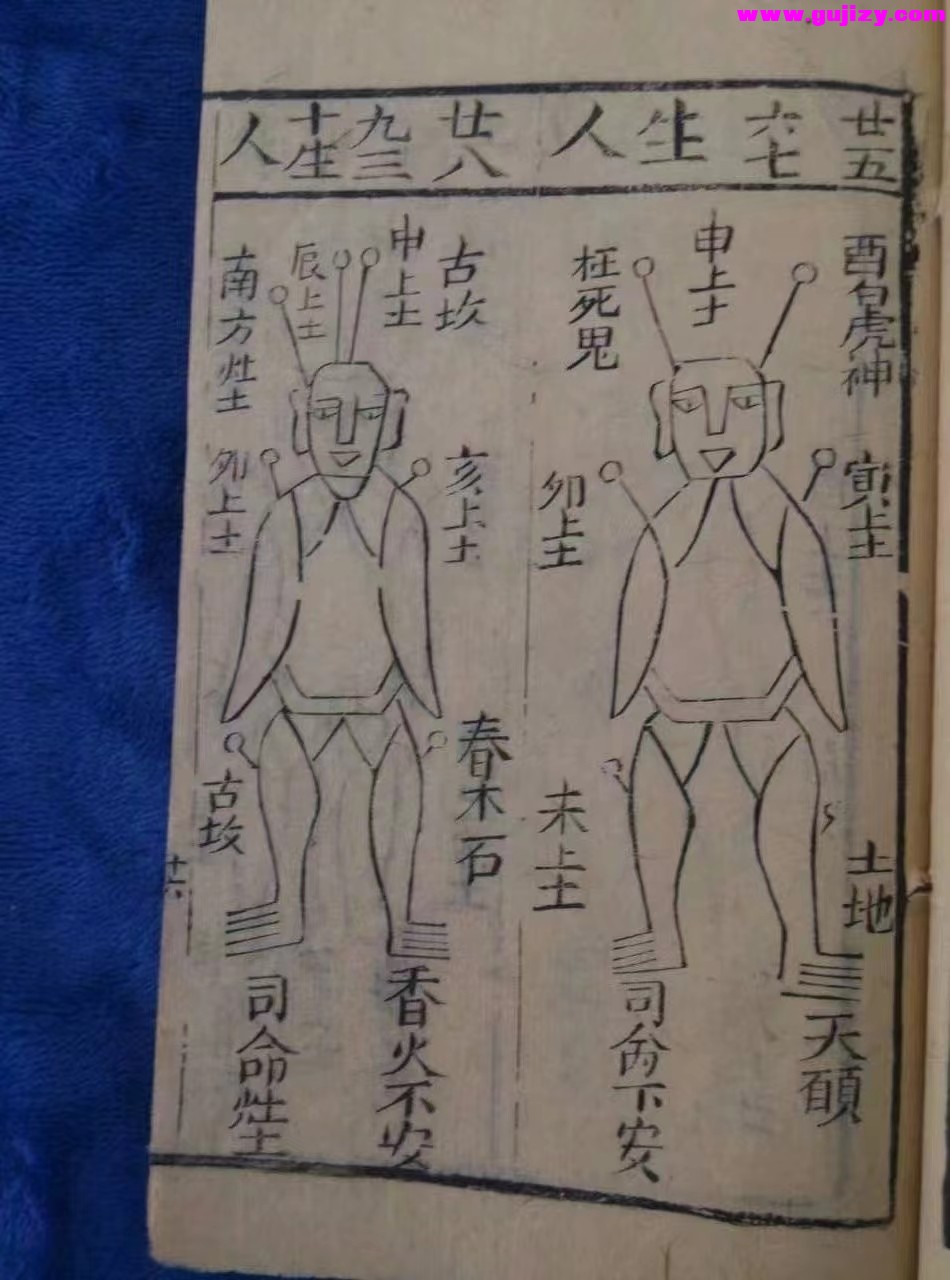 www.gujizy.com
廿五
六七
生
人
廿八
九三
十生
人
酉白虎神
申上土
枉死鬼
寅上土
卯上土
土地
未上土
天願
司命不安
古坟
申上土
辰上土
南方灶土
亥上土
卯上土
春木石
古坟
香火不安
司命灶土
十六